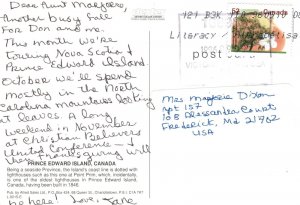 Dear Aunt Marjorie,
Another busy Fall
for Don and me.
This month we're
touring Nova Scotia &
Prince Edward Island.
October we'll spend
mostly in the North
Carolina mountains looking
at leaves. A long
weekend in November
at Christian Believers
United Conference - &
then Thanksgiving will
PRINCE EDWARD ISLAND, CANADA
Being a seaside Province, the Island's coast line is dotted with
lighthouses such as this one at Point Prim, which, incidentally,
is one of the oldest lighthouses in Prince Edward Island,
Canada, having been built in 1846.
be here! Love, Jane
Literacy
post
Mrs Marjorie Dixon
Apt 157
Frederick, Md 21702
USA